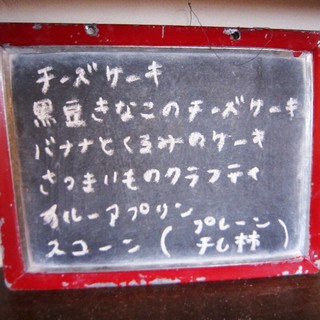 チーズケーキ
黒豆きなこのチーズケーキ
バナナとくるみのケーキ
さつまいものクラフティ
スコーン (プレーン
干し林)